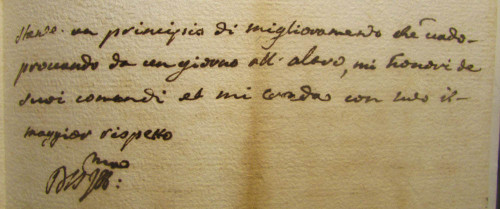 stando un principio di miglioramento che vado
provando da un giorno all' altro, mi honori de
suoi comandi et mi creda con tuto il
maggior rispetto